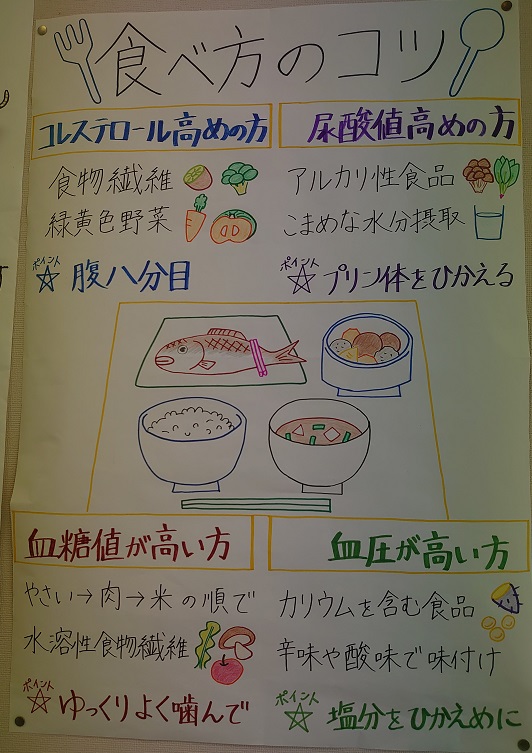 食べ方のコツ
コレステロール高めの方
食物繊維
緑黄色野菜
ポイント
☆腹八分目
尿酸値高めの方
アルカリ性食品
こまめな水分摂取
ポイント
☆プリン体をひかえる
血糖値が高い方
やさい→肉→米の順で
水溶性食物繊維
ポイント
☆ゆっくりよく噛んで
血圧が高い方
カリウムを含む食品
辛味や酸味で味付け
ポイント
☆塩分をひかえめに